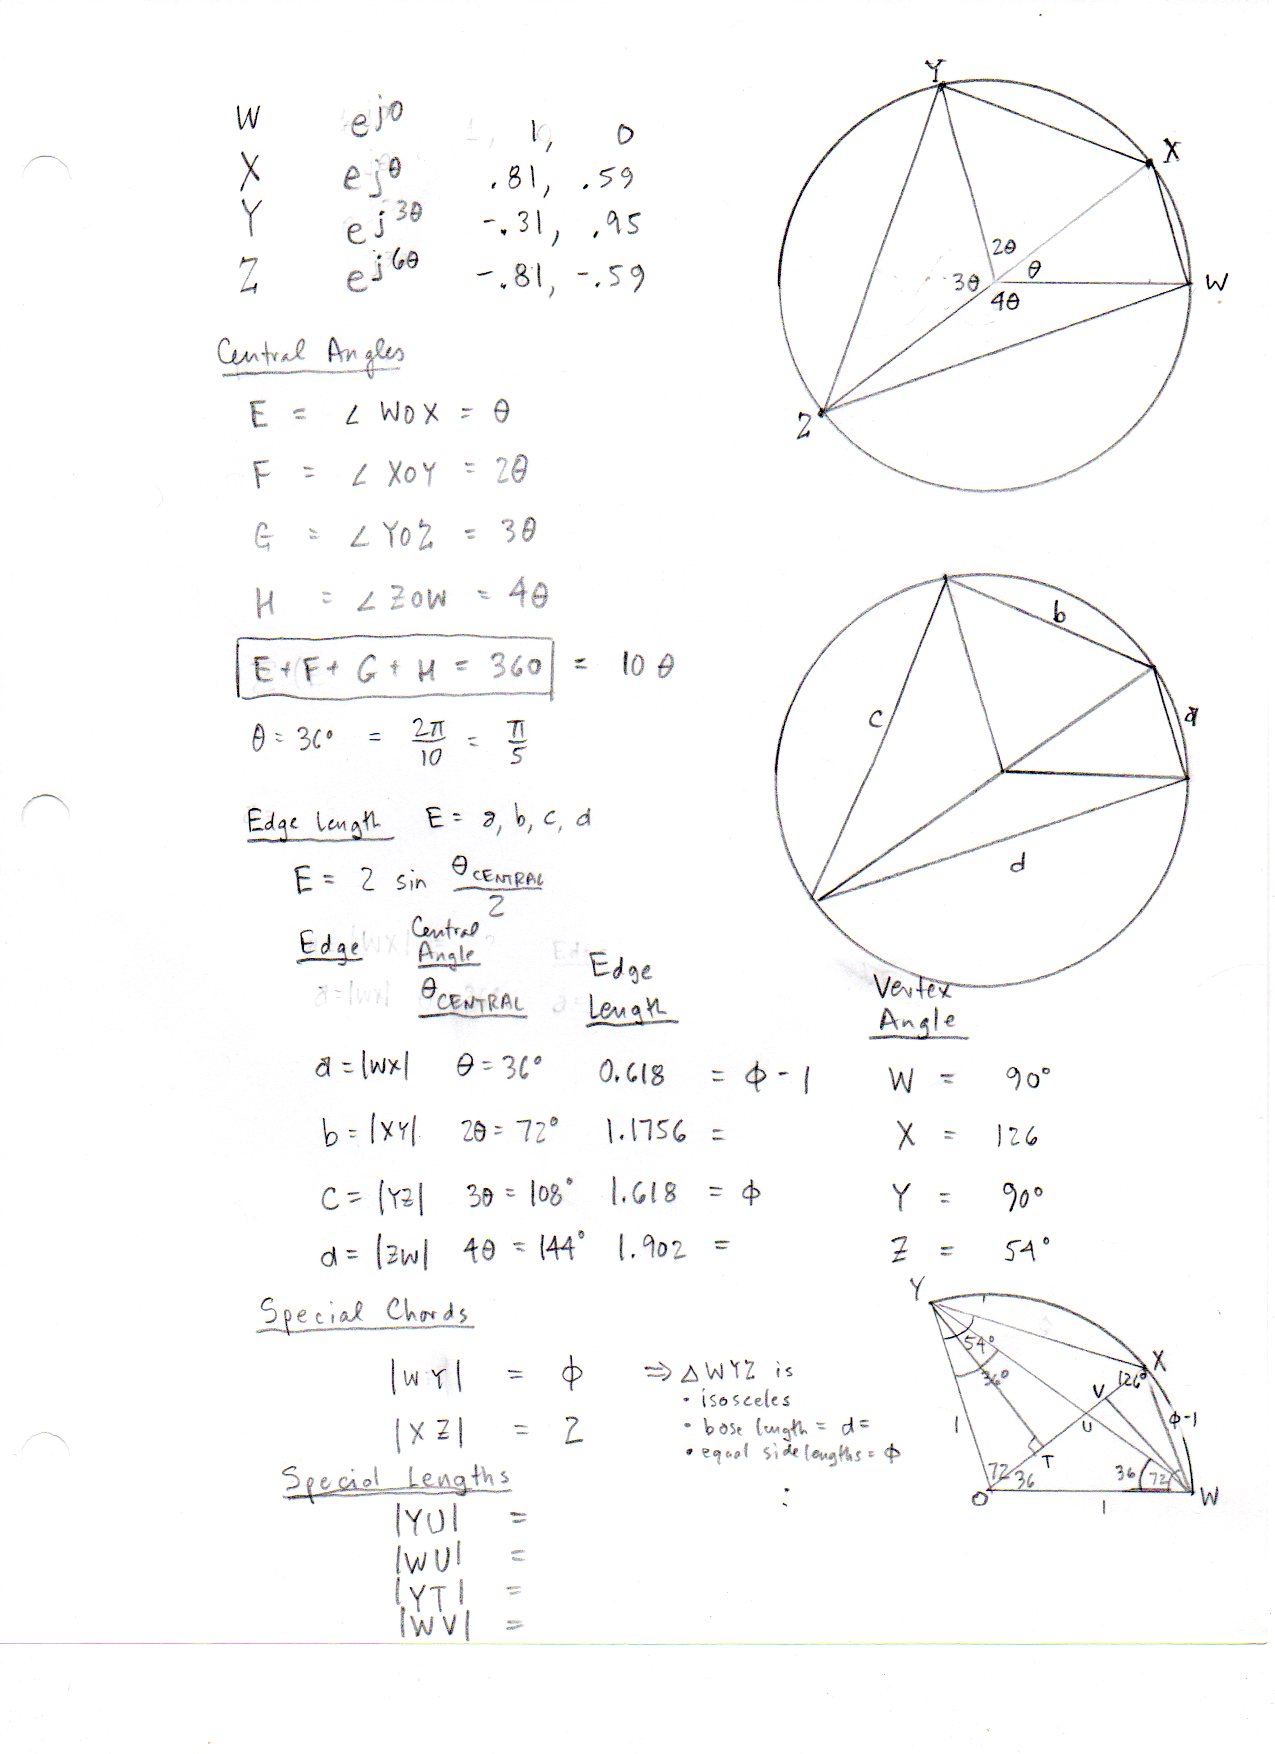 W e^{j0} 1, 0
X e^{jθ} .81, .59
Y e^{j3θ} -.31, .95
Z e^{j6θ} -.81, -.59
Y
X
2θ
3θ θ
4θ
W
Z
Central Angles
E = ∠ WOX = θ
F = ∠ XOY = 2θ
G = ∠ YOZ = 3θ
H = ∠ ZOW = 4θ
E + F + G + H = 360 = 10 θ
θ = 36° = 2π/10 = π/5
b
c
a
d
Edge Length E = a, b, c, d
E = 2 sin θCENTRAL/2
Edge Central Angle θCENTRAL Edge Length Vertex Angle
a = |WX| θ = 36° 0.618 = ϕ - 1 W = 90°
b = |XY| 2θ = 72° 1.1756 = X = 126
c = |YZ| 3θ = 108° 1.618 = ϕ Y = 90°
d = |ZW| 4θ = 144° 1.902 = Z = 54°
Special Chords
|WY| = ϕ ⇒ △ WYZ is
• isosceles
|XZ| = 2
• base length = d =
• equal side lengths = ϕ
Special Lengths
|YU| =
|WU| =
|YT| =
|WV| =
Y
1
54°
36°
X
126°
V
U
ϕ-1
1
T
72 36
36 72
O
1
W